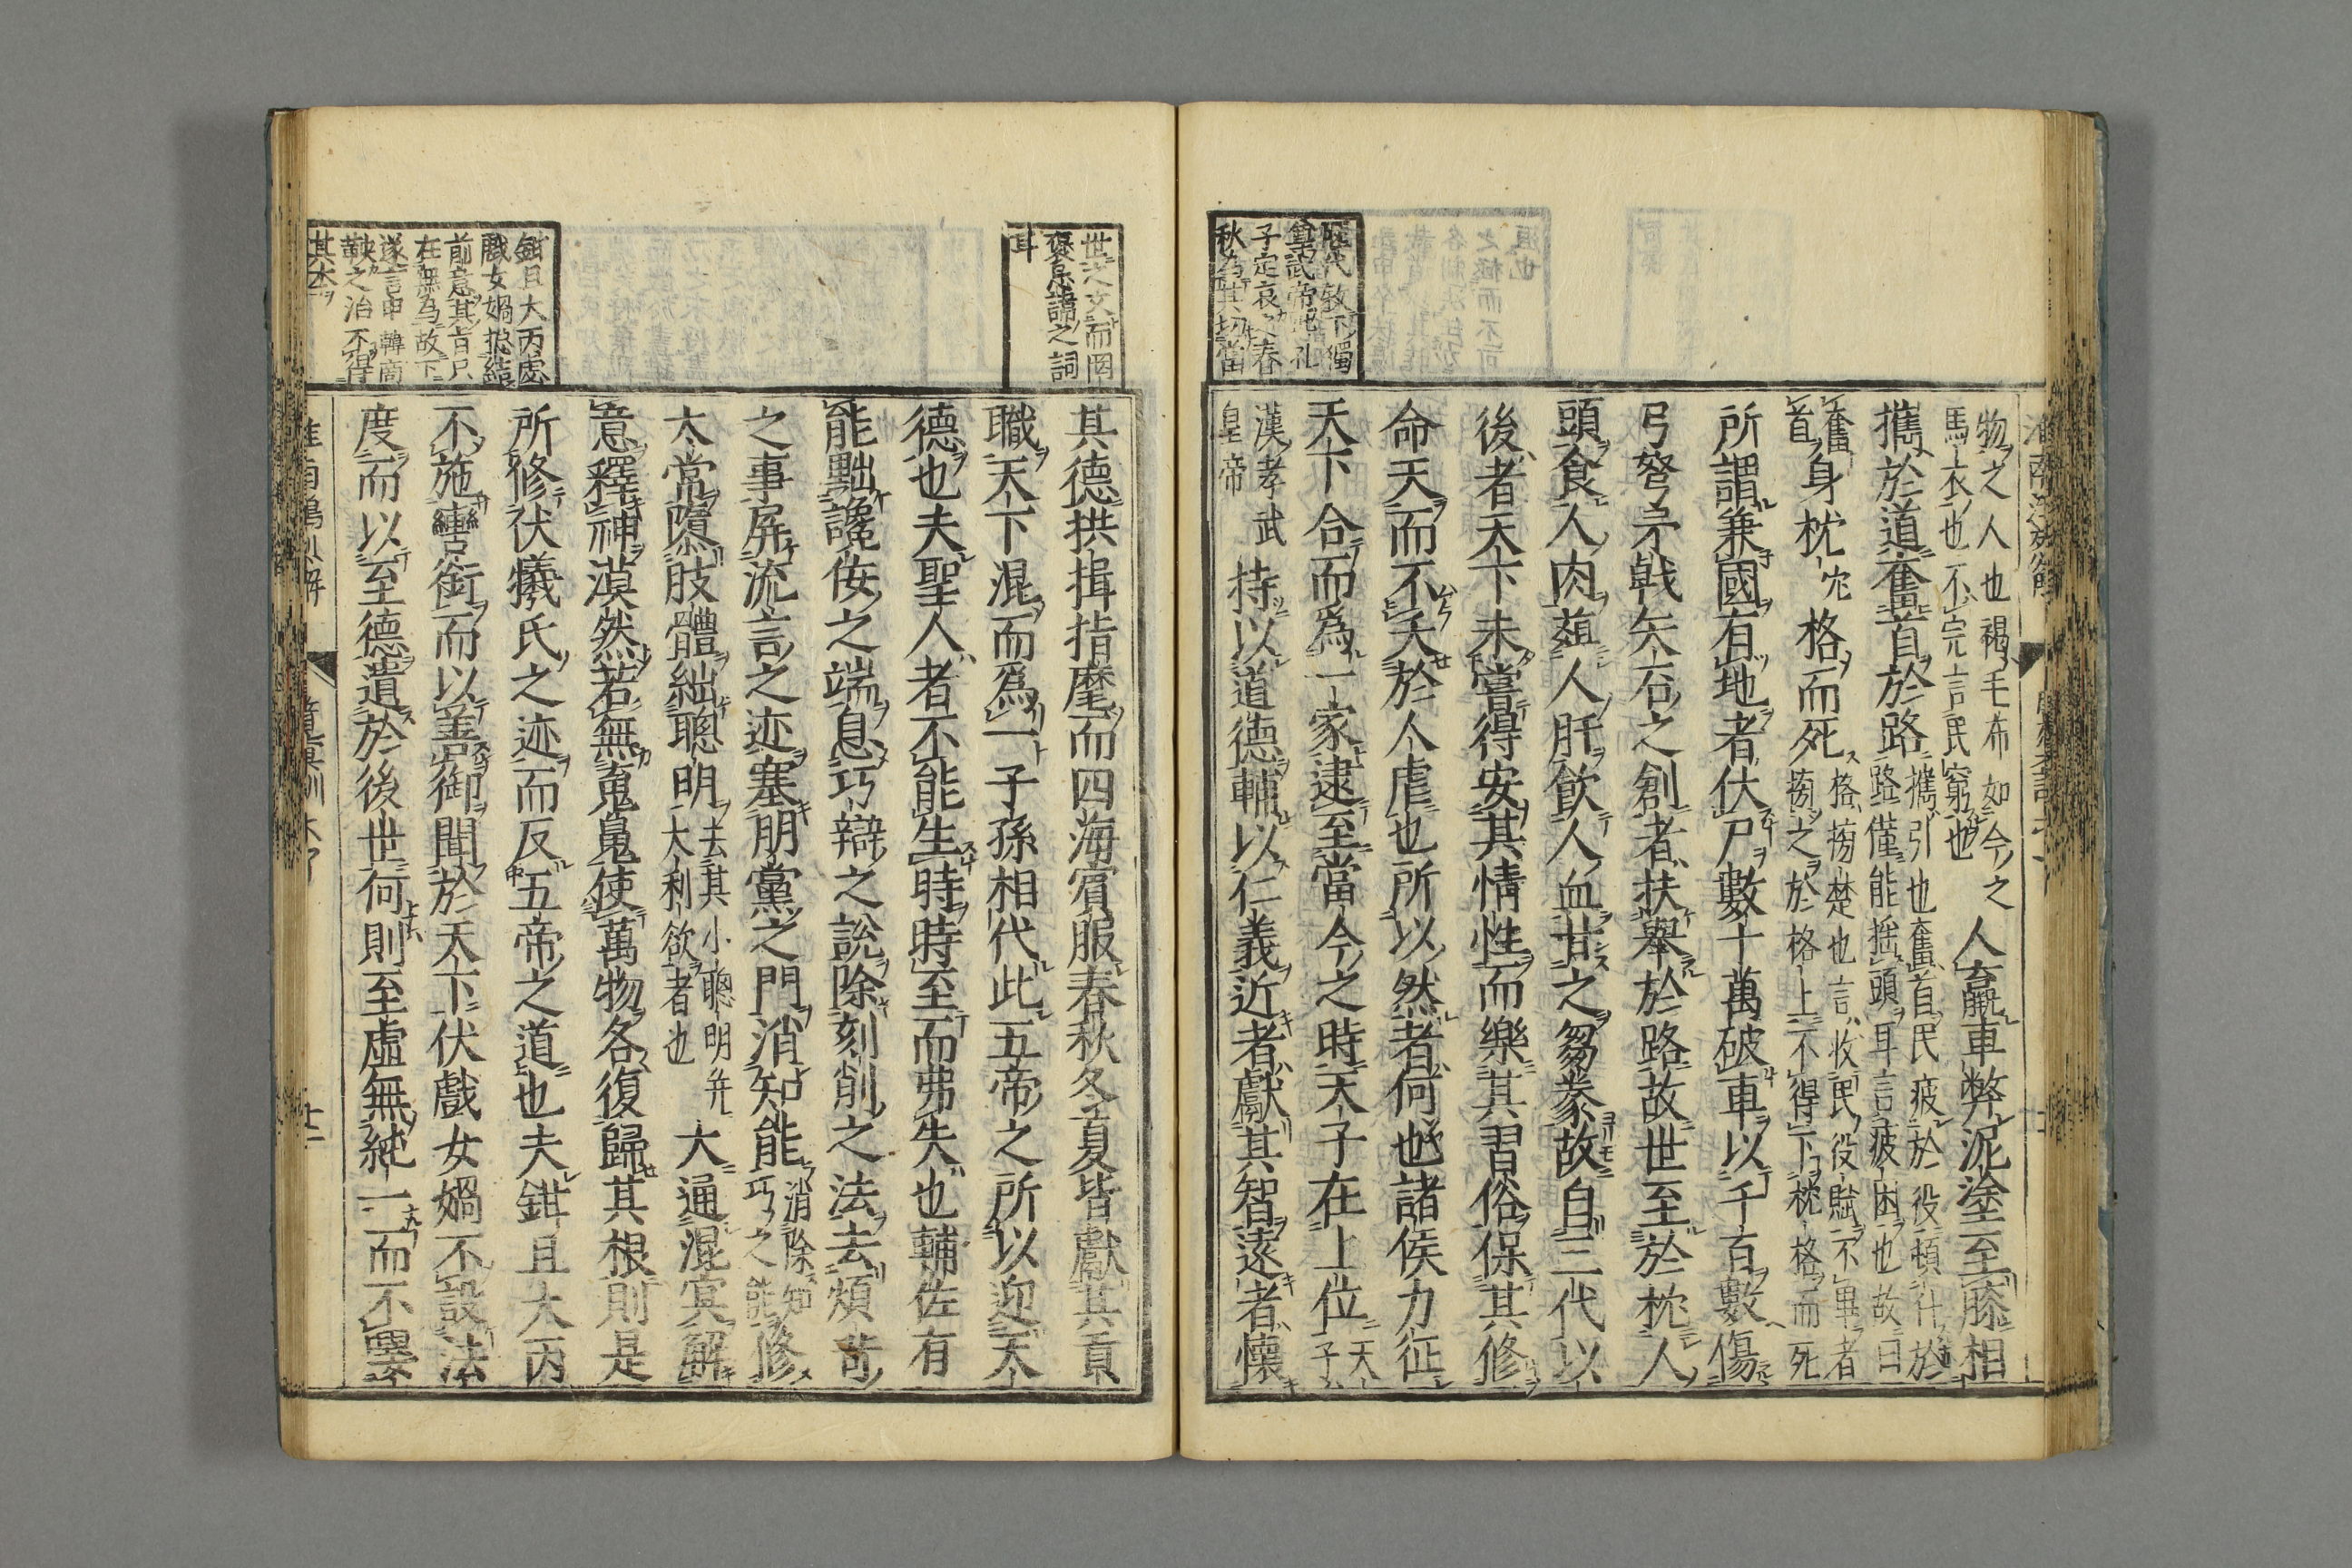 物之人也褐毛布如今之
馬衣也不完言民窮也
人羸車弊泥塗至膝相
攜於道奮首於路
攜引也奮首民疲於役頓仆於
路僅能搖頭耳言疲困也故曰
奮
首
身枕
格而死
格搒楚也言收民役賦不畢者
搒之於格上不得下枕格而死
所謂兼國有地者伏尸數十萬破車以千百數傷
弓弩矛戟矢石之創者扶舉於路故世至於枕人
頭食人肉葅人肝飲人血甘之芻豢故自三代以
後者天下未嘗得安其情性而樂其習俗保其修
命天而不夭於人虐也所以然者何也諸侯力征
天下合而爲一家逮至當今之時天子在上位
天
子
漢孝武
皇帝
持以道德輔以仁義近者獻其智遠者懷
子定哀
世之文而罔
褒忌諱之詞
耳
其德拱揖指麾而四海賓服春秋冬夏皆獻其貢
職天下混而爲一子孫相代此五帝之所以迎天
德也夫聖人者不能生時時至而弗失也輔佐有
能黜讒佞之端息巧辯之說除刻削之法去煩苛
之事屏流言之迹塞朋黨之門消知能
消除知
巧之能
修
太常隳肢體絀聰明
去其小聰明并
大利欲者也
大通混冥解
意釋神漠然若無䰟鬼使萬物各復歸其根則是
所修伏犧氏之迹而反五帝之道也夫鉗且大丙
不施轡銜而以善御聞於天下伏戲女媧不設法
度而以至德遺於後世何則至虛無純一而不㗲
鉗且大丙處
戲女媧揔結
前意其旨只
在無為故下
遂言申韓商
鞅之治不得
其本